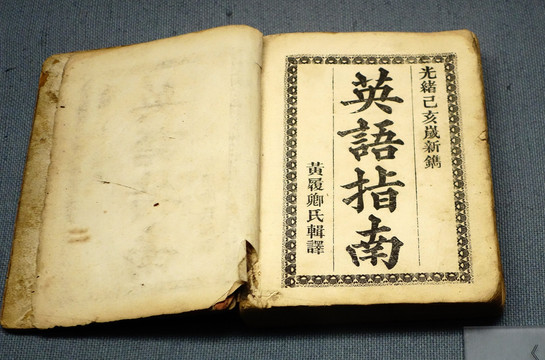 光緒己亥歲新鐫
英語指南
黃履卿氏輯譯